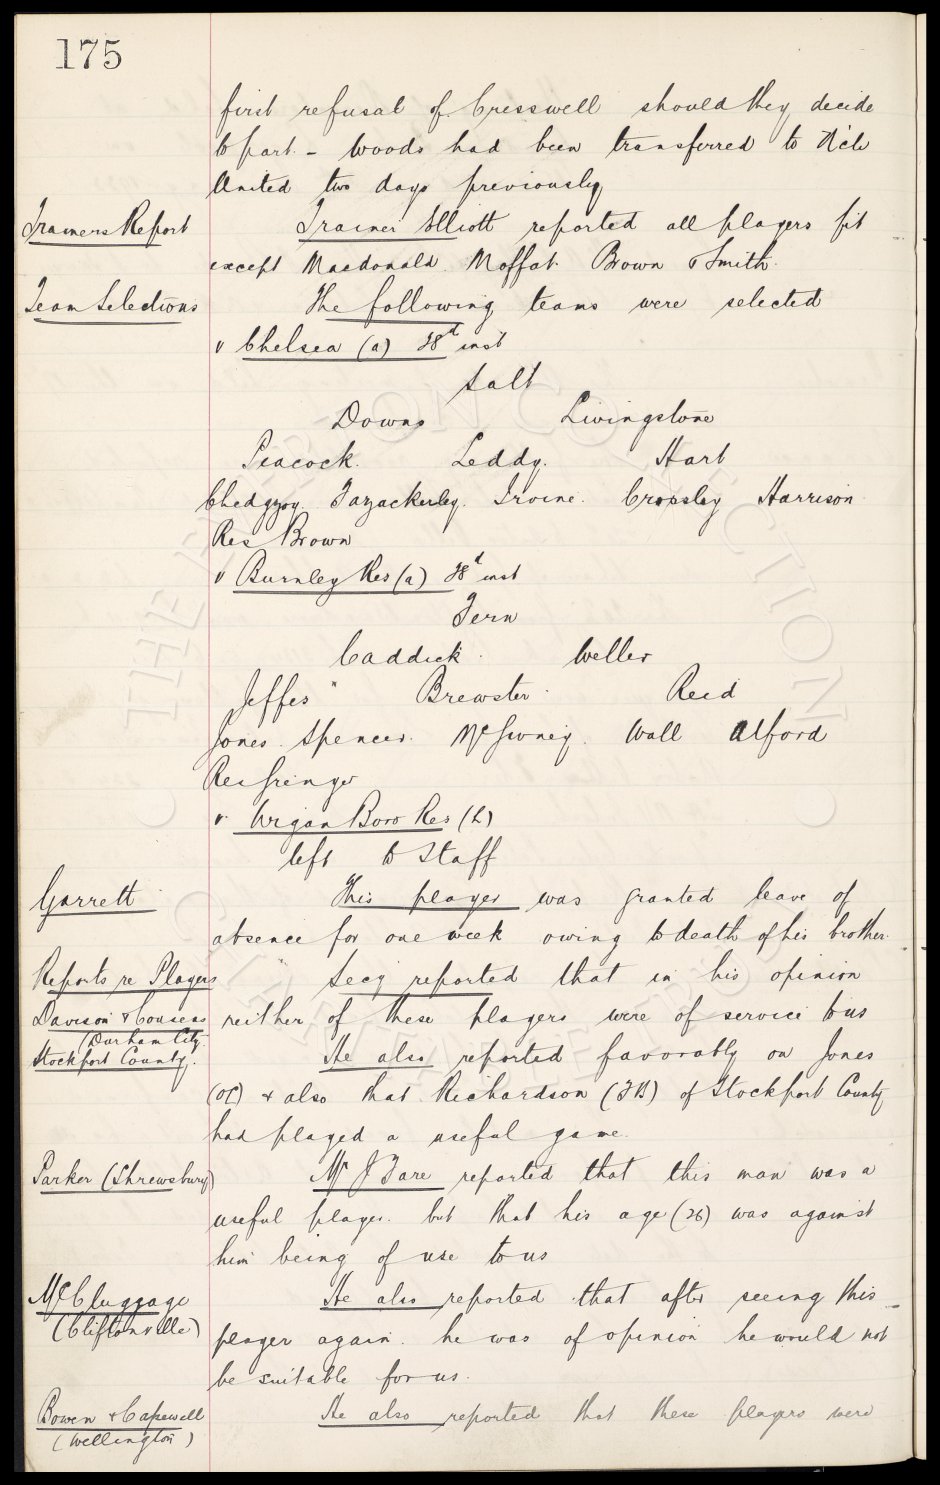 175
first refusal of Cresswell should they decide
to part. – Woods had been transferred to N'cle
United two days previously
Trainers Report
Trainer Elliott reported all players fit
except Macdonald. Moffat. Brown & Smith.
Team Selections
The following teams were selected
v Chelsea (a) 28th inst
Salt
Downs Livingstone
Peacock. Leddy. Hart
Chedgzoy. Fazackerley. Irvine. Crossley Harrison
Res Brown
v Burnley Res (a) 28th inst
Fern
Caddick. Weller
Jeffes Brewster. Reid
Jones. Spencer. McGivney. Wall Alford
Res Grenyer
v. Wigan Boro Res (h)
left to Staff
Garrett
This player was granted leave of
absence for one week owing to death of his brother.
Reports re Players
Secy reported that in his opinion
Davison & Cousens
neither of these players were of service to us
(Durham City
Stockport County.
He also reported favorably on Jones
(OL) & also that Richardson (FB) of Stockport County
had played a useful game.
Parker (Shrewsbury)
Mr J Fare reported that this man was a
useful player. but that his age (26) was against
him being of use to us
McCluggage
(Cliftonville)
He also reported that after seeing this
player again. he was of opinion he would not
be suitable for us.
Bowen & Capewell
(Wellington)
He also reported that these players were